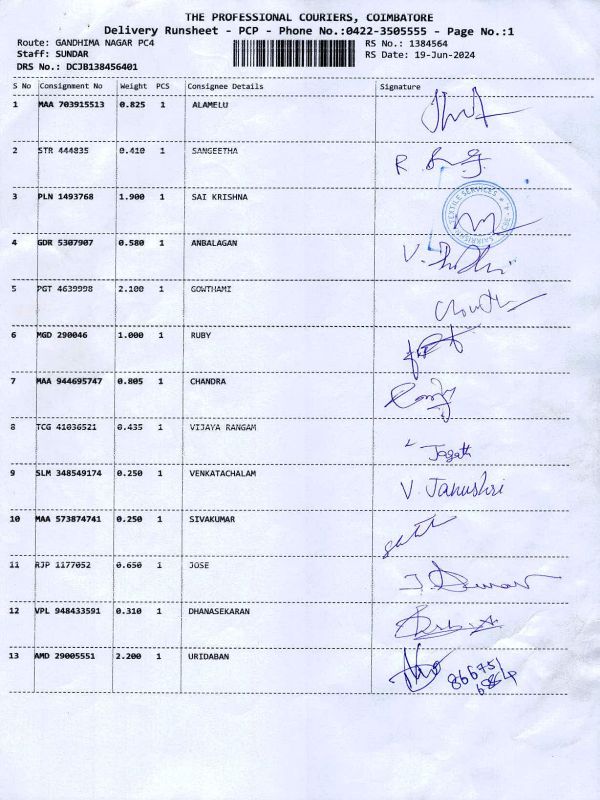 THE PROFESSIONAL COURIERS, COIMBATORE
Delivery Runsheet - PCP - Phone No.:0422-3505555 - Page No.:1
Route: GANDHIMA NAGAR PC4 RS No.: 1384564
Staff: SUNDAR RS Date: 19-Jun-2024
DRS No.: DCJB138456401
S No Consignment No Weight PCS Consignee Details Signature
1 MAA 703915513 0.825 1 ALAMELU
2 STR 444835 0.410 1 SANGEETHA R
3 PLN 1493768 1.900 1 SAI KRISHNA
TEXTILE SERVICES
4 GDR 5307907 0.580 1 ANBALAGAN V.
5 PGT 4639998 2.100 1 GOWTHAMI
6 MGD 290046 1.000 1 RUBY
7 MAA 944695747 0.805 1 CHANDRA
8 TCG 41036521 0.435 1 VIJAYA RANGAM Jagath
9 SLM 348549174 0.250 1 VENKATACHALAM V Janushri
10 MAA 573874741 0.250 1 SIVAKUMAR
11 RJP 1177052 0.650 1 JOSE
12 VPL 948433591 0.310 1 DHANASEKARAN
13 AMD 29005551 2.200 1 URIDABAN 866751